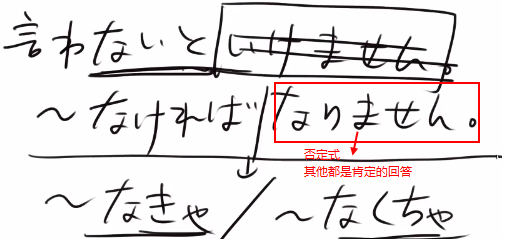 言わないといけません。
～なければなりません。
否定式
其他都是肯定的回答
～なきゃ/～なくちゃ